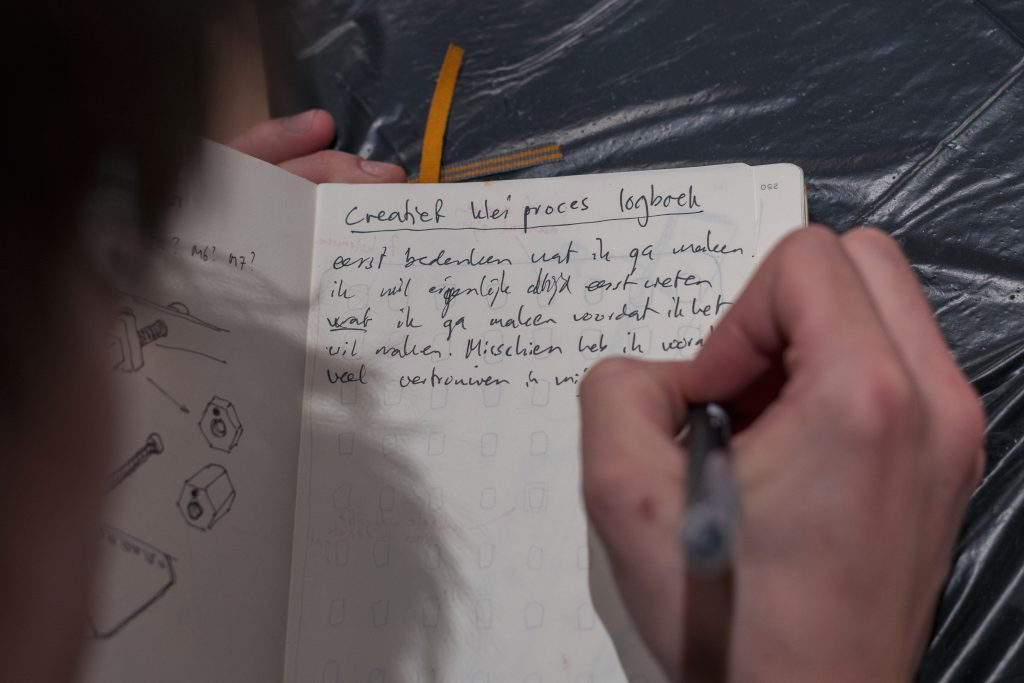 M6? M7?
creatief klei proces logboek
eerst bedenken wat ik ga maken.
ik wil eigenlijk altijd eerst weten
wat ik ga maken voordat ik het
wil maken. Misschien heb ik vooraf
veel vertrouwen in mij
080